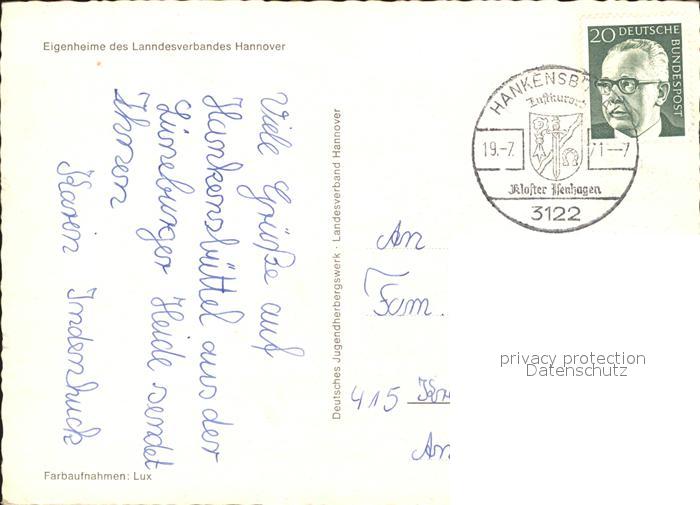 Eigenheime des Lanndesverbandes Hannover
Viele Grüße auf
Hankensbüttel aus der
Lüneburger Heide sendet
Ihnen
Karin Indenhuck
Farbaufnahmen: Lux
Deutsches Jugendherbergswerk · Landesverband Hannover
20 DEUTSCHE
BUNDESPOST
HANKENSBÜ
Luftkurort
19.-7. 71--7
Kloster Isenhagen
3122
An
Fam.
415
An
privacy protection
Datenschutz